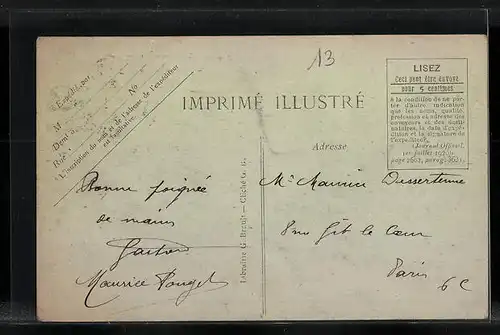 13
Expédié par
M
Demt à
Rue
No
L'inscription du nom et de l'adresse de l'expéditeur
est facultative.
IMPRIMÉ ILLUSTRÉ
LISEZ
Ceci peut être envoyé
pour 5 centimes
à la condition de ne porter
d'autre indication
que les noms, qualité,
profession et adresse des
correspondants et des destinataires,
la date d'expédition
et la signature de
l'expéditeur.
Journal Officiel,
Adresse
Bonne poignée
de mains
Gaston
Maurice Pouget
Librairie G. — Cliché G. B.
Mr Maurice Dusserteune
8 rue Gît le Cœur
Paris 6e